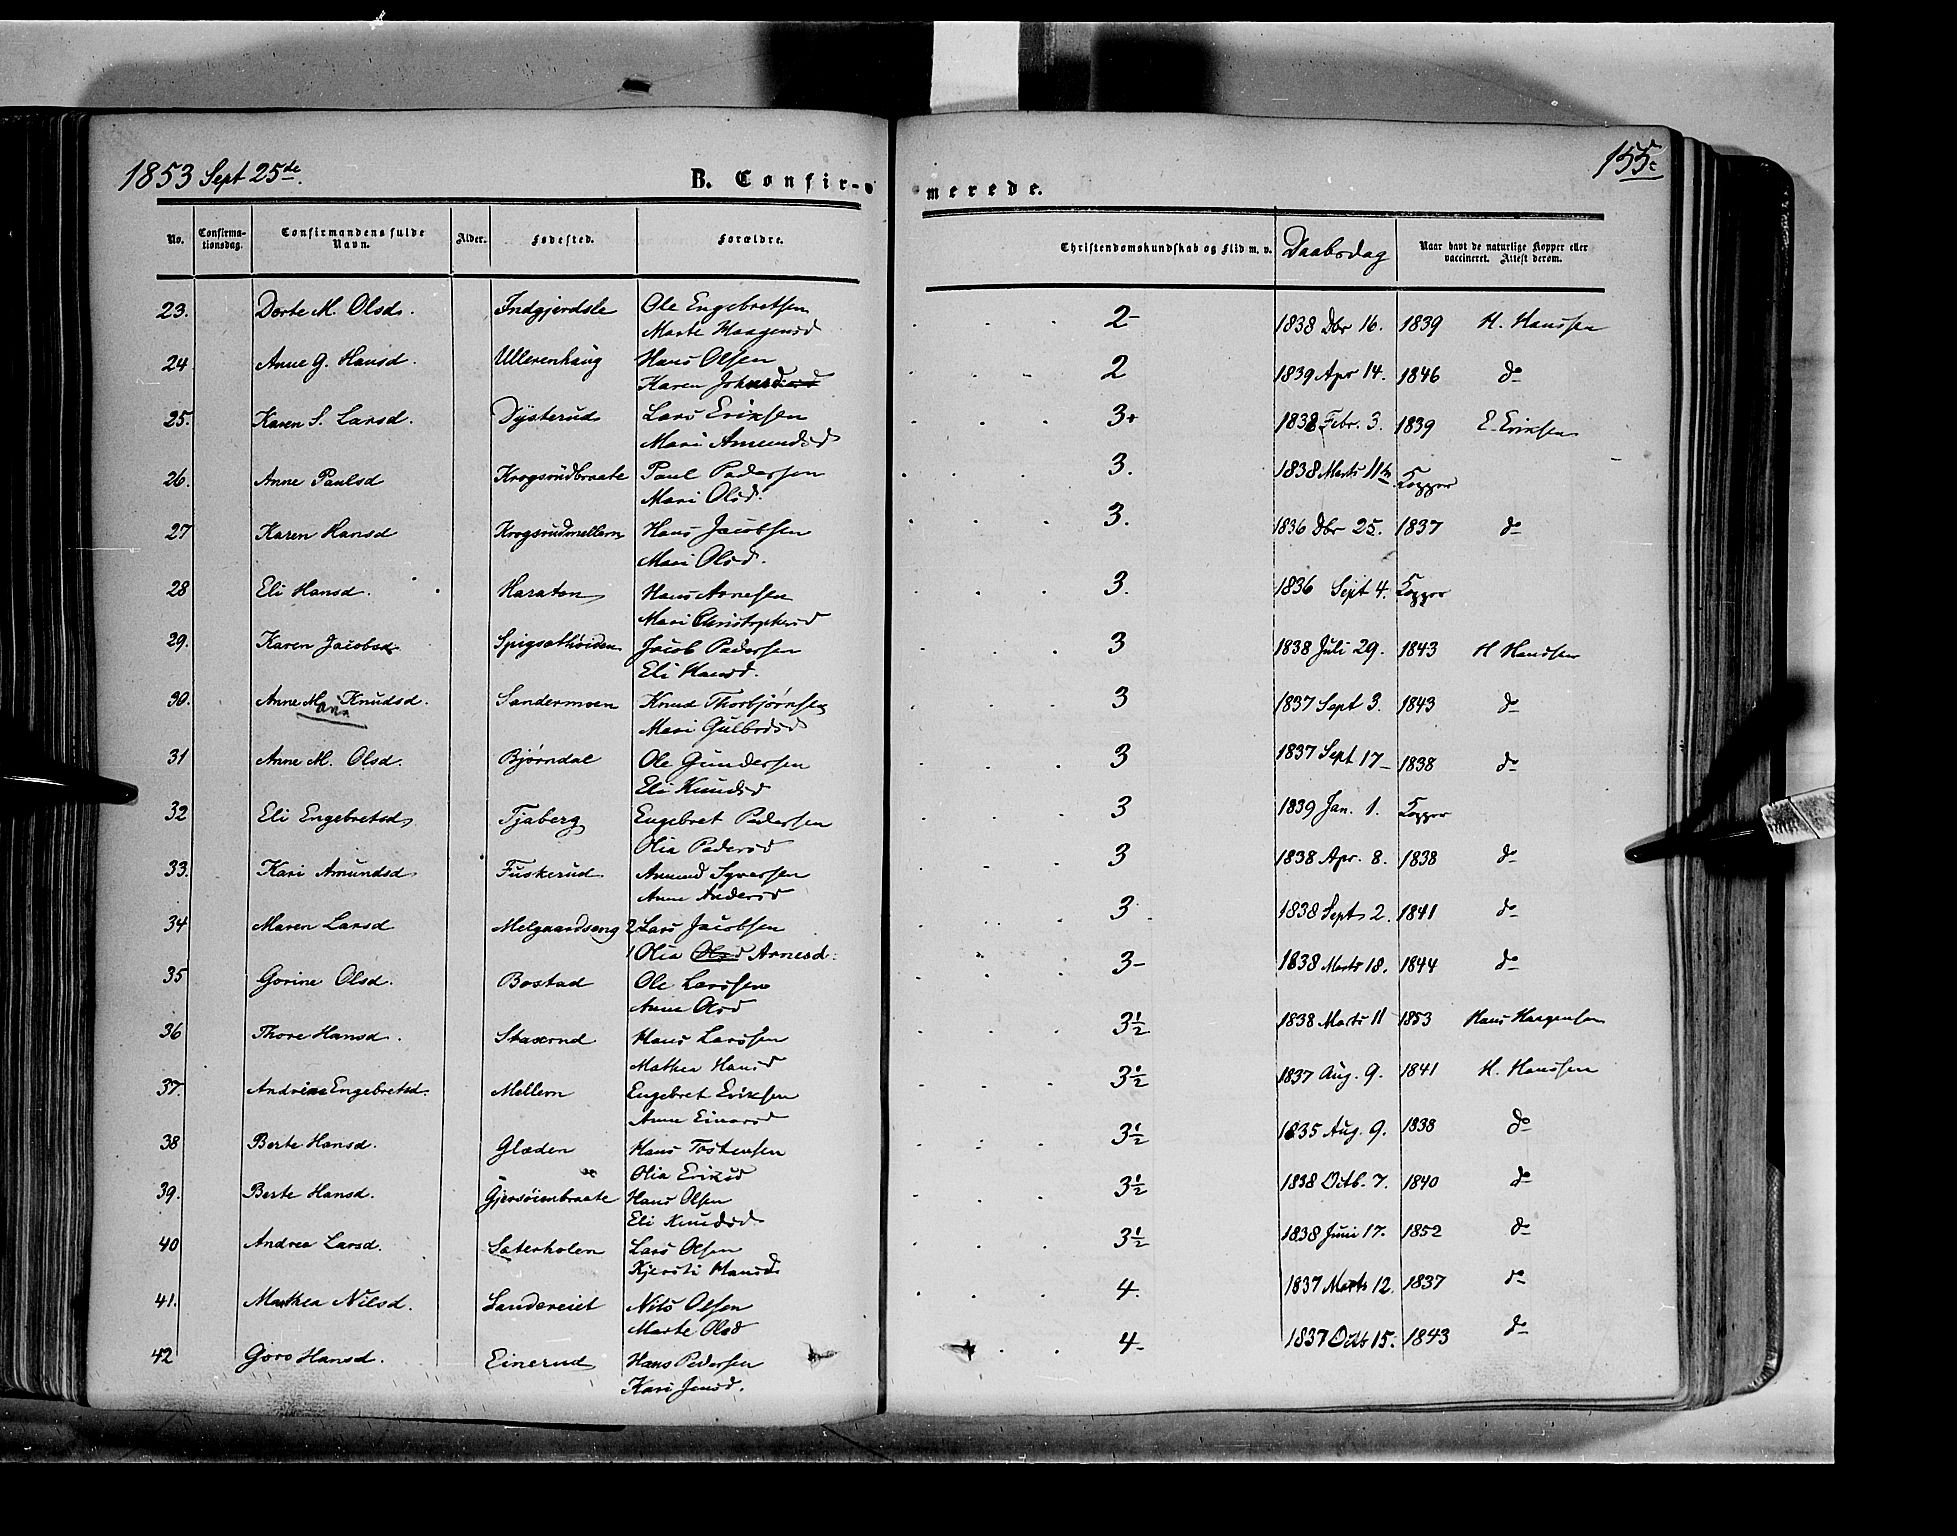 1853 Sept 25de.
B. Confir-
merede.
155.
No.
Confirma-
tionsdag.
Confirmandens fulde
Navn.
Alder.
Fødested.
Forældre.
Christendomskundskab og Flid m. v.
Daabsdag
Naar havt de naturlige Kopper eller
vaccineret. Attest derom.
23. Dorte M. Olsd. Indgjerdsle Ole Engebretsen 2- 1838 Dbr 16. 1839 H. Hanssen
Marte Haagensd
24. Anne G. Hansd. Ullerenhaug Hans Olsen 2 1839 Apr 14. 1846 do
Karen Johnsd
25. Karen S. Larsd. Dysterud Lars Eriksen 3+ 1838 Febr. 3. 1839 E. Eriksen
Mari Amundsd
26. Anne Paulsd Krogsrudbraate Paul Pedersen 3. 1838 Marts 11te Kopper
Mari Olsd.
27 Karen Hansd Krogsrudmellem Hans Jacobsen 3. 1836 Dbr 25. 1837 do
Mari Olsd.
28 Eli Hansd. Haraton Hans Arnesen 3. 1836 Sept 4. Kopper
Mari Christophersd
29. Karen Jacobsd. Spigsethøiden Jacob Pedersen 3 1838 Juli 29. 1843 H Hansen
Eli Hansd.
30. Anne M. Knudsd. Sandermoen Knud Thorbjørnsen 3 1837 Sept 3. 1843 do
Mari Gulbrdsd
31 Anne M. Olsd. Bjørndal Ole Gundersen 3 1837 Sept 17- 1838 do
Eli Knudsd
32 Eli Engebretsd. Tjaberg Engebret Pedersen 3 1839 Jan. 1. Kopper
Olia Pedersd
33. Kari Amundsd. Fuskerud Amund Syversen 3 1838 Apr. 8. 1838 do
Anne Andersd
34 Maren Larsd Melgaardseng 2 Lars Jacobsen 3 1838 Sept 2. 1841 do
1 Olia Olsd Arnesd.
35 Gorine Olsd. Bostad Ole Larssen 3- 1838 Marts 18. 1844 do
Anne Olsd
36 Thore Hansd. Staxrud Hans Larssen 3½ 1838 Marts 11 1853 Hans Haagensen
Mathea Hansd
37. Andrine Engebretsd. Mellem Engebret Eriksen 3½ 1837 Aug. 9. 1841 H. Hanssen
Anne Einarsd
38 Berte Hansd. Glæden Hans Tostensen 3½ 1835 Aug. 9. 1838 do
Olia Eriksd
39. Berte Hansd. Gjersøienbraate Hans Olsen 3½ 1838 Octb. 7. 1840 do
Eli Knudsd
40 Andrea Larsd. Sæterholen Lars Olsen 3½ 1838 Juni 17. 1852 do
Kjersti Hansd.
41. Mathea Nilsd. Sandereiet Nils Olsen 4. 1837 Marts 12. 1837 do
Marte Olsd
42 Goro Hansd. Einerud Hans Pedersen 4- 1837 Octb 15. 1843 do
Kari Jensd.